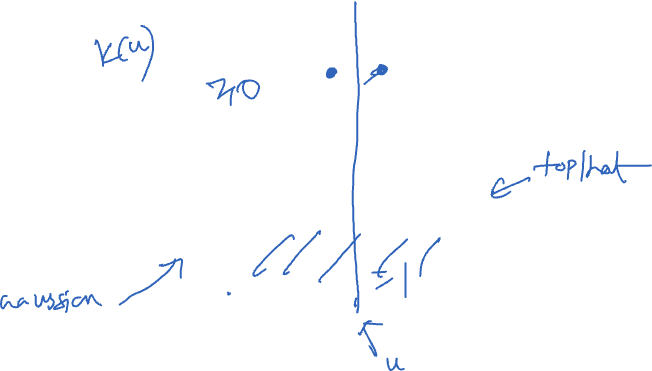 K(u)
top/hat
gaussian
u